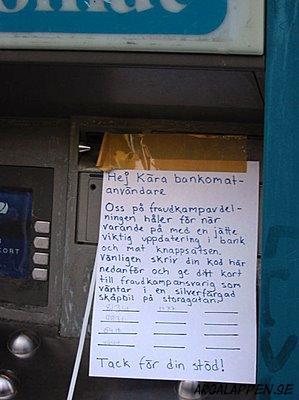 Hej Kära bankomat-
användare
Oss på fraudkampavdel-
ningen håller för när
varande på med en jätte
viktig uppdatering i bank
och mat knappsatsen.
Vänligen skriv din kod här
nedanför och ge ditt kort
till fraudkampansvarig som
väntar i en silverfärgad
skåpbil på storagatan.
Tack för din stöd!
ARGALAPPEN.SE